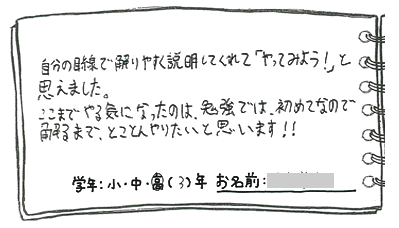 自分の目線で解りやすく説明してくれて「やってみよう!」と
思えました。
ここまでやる気になったのは、勉強では、初めてなので
解るまで、とことんやりたいと思います!!
学年:小・中・高(3)年 お名前: